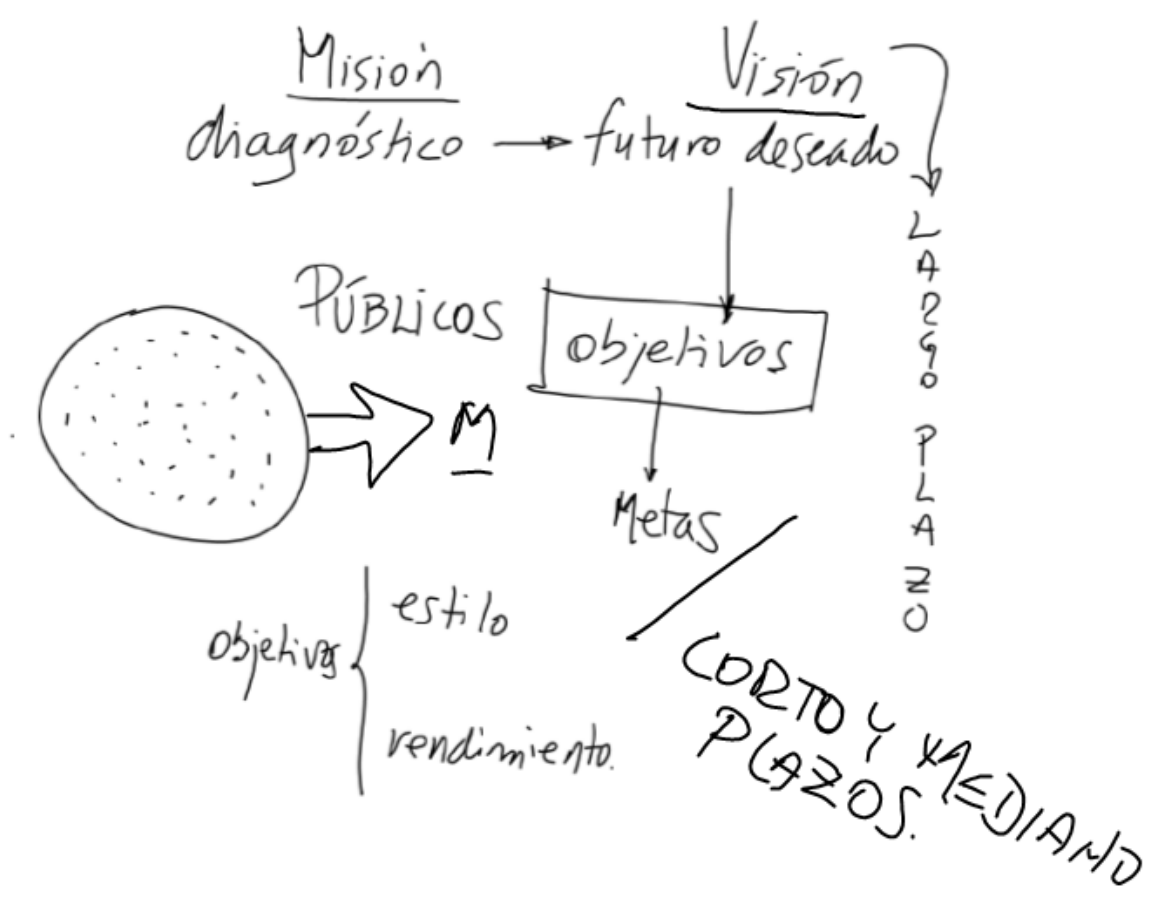 Misión
Visión
diagnóstico
futuro deseado
LARGO PLAZO
PÚBLICOS
objetivos
M
Metas
objetivos
estilo
rendimiento.
CORTO Y MEDIANO
PLAZOS.